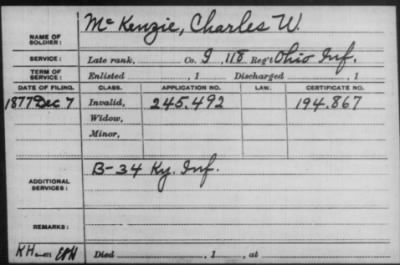 NAME OF SOLDIER: McKenzie, Charles W.
SERVICE: Late rank, Co. G, 118 Reg't Ohio Inf.
TERM OF SERVICE: Enlisted , 1 Discharged , 1
DATE OF FILING. CLASS. APPLICATION NO. LAW. CERTIFICATE NO.
1877 Dec 7 Invalid, 245.492 194.867
Widow,
Minor,
ADDITIONAL SERVICES: B-34 Ky. Inf.
REMARKS:
Died , 1 , at